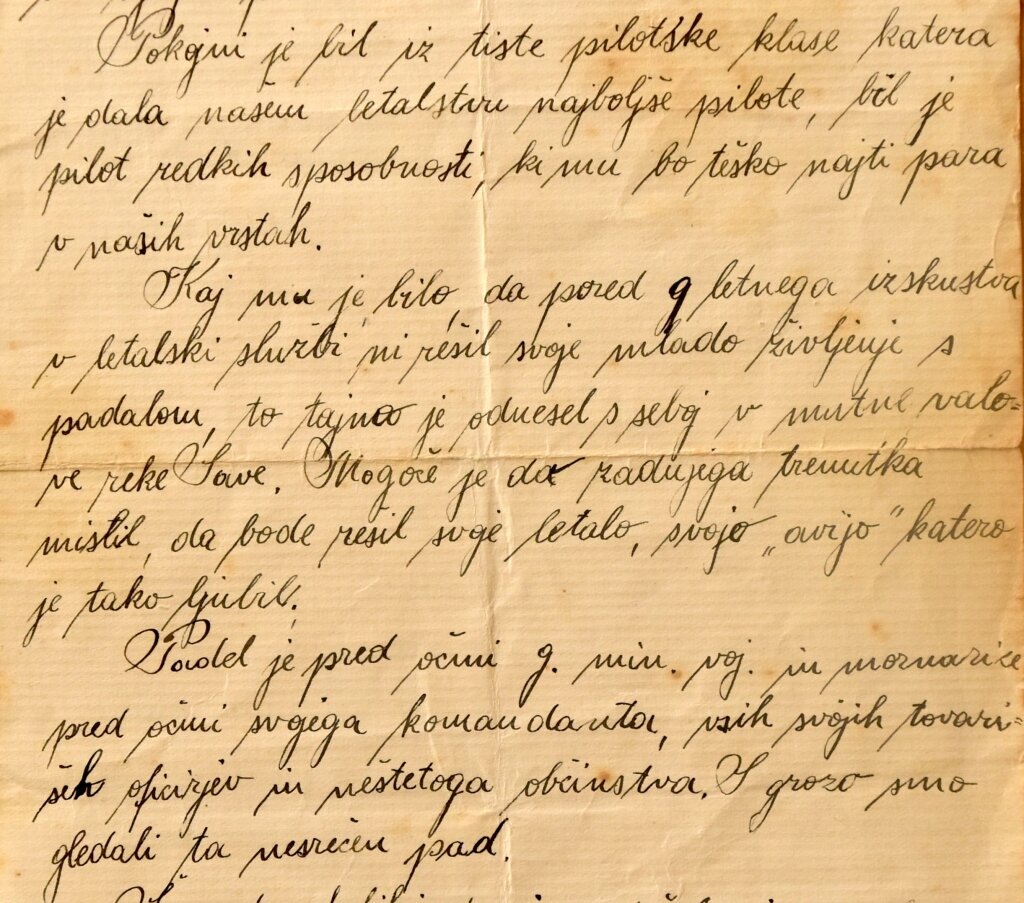 Pokojni je bil iz tiste pilotske klase katera
je dala našem letalstvu najboljše pilote, bil je
pilot redkih sposobnosti, ki mu bo teško najti para
v naših vrstah.
Kaj mu je bilo, da pored 9 letnega izskustva
v letalski službi ni rešil svoje mlado življenje s
padalom, to tajno je odnesel s seboj v mutne valo=
ve reke Save. Mogoče je da zadnjega trenutka
mislil, da bode rešil svoje letalo, svojo „avijo" katero
je tako ljubil.
Padel je pred očmi g. min. voj. in mornarice
pred očmi svojega komandanta, vsih svojih tovari=
šeh oficirjev in neštetoga občinstva. S grozo smo
gledali ta nesrečen pad.